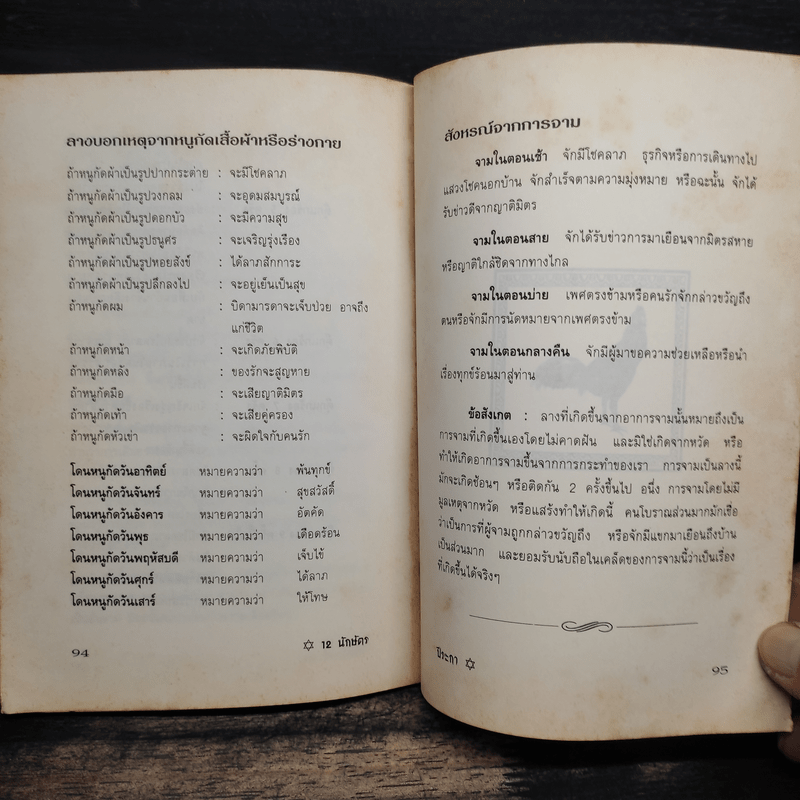 ลางบอกเหตุจากหนูกัดเสื้อผ้าหรือร่างกาย
ถ้าหนูกัดผ้าเป็นรูปปากกระต่าย : จะมีโชคลาภ
ถ้าหนูกัดผ้าเป็นรูปวงกลม : จะอุดมสมบูรณ์
ถ้าหนูกัดผ้าเป็นรูปดอกบัว : จะมีความสุข
ถ้าหนูกัดผ้าเป็นรูปธนูศร : จะเจริญรุ่งเรือง
ถ้าหนูกัดผ้าเป็นรูปหอยสังข์ : ได้ลาภสักการะ
ถ้าหนูกัดผ้าเป็นรูปลึกลงไป : จะอยู่เย็นเป็นสุข
ถ้าหนูกัดผม : บิดามารดาจะเจ็บป่วย อาจถึง
แก่ชีวิต
ถ้าหนูกัดหน้า : จะเกิดภัยพิบัติ
ถ้าหนูกัดหลัง : ของรักจะสูญหาย
ถ้าหนูกัดมือ : จะเสียญาติมิตร
ถ้าหนูกัดเท้า : จะเสียคู่ครอง
ถ้าหนูกัดหัวเข่า : จะผิดใจกับคนรัก
โดนหนูกัดวันอาทิตย์ หมายความว่า พ้นทุกข์
โดนหนูกัดวันจันทร์ หมายความว่า สุขสวัสดิ์
โดนหนูกัดวันอังคาร หมายความว่า อัตคัด
โดนหนูกัดวันพุธ หมายความว่า เดือดร้อน
โดนหนูกัดวันพฤหัสบดี หมายความว่า เจ็บไข้
โดนหนูกัดวันศุกร์ หมายความว่า ได้ลาภ
โดนหนูกัดวันเสาร์ หมายความว่า ให้โทษ
94 ✡ 12 นักษัตร
สังหรณ์จากการจาม
จามในตอนเช้า จักมีโชคลาภ ธุรกิจหรือการเดินทางไป
แสวงโชคนอกบ้าน จักสำเร็จตามความมุ่งหมาย หรือฉะนั้น จักได้
รับข่าวดีจากญาติมิตร
จามในตอนสาย จักได้รับข่าวการมาเยือนจากมิตรสหาย
หรือญาติใกล้ชิดจากทางไกล
จามในตอนบ่าย เพศตรงข้ามหรือคนรักจักกล่าวขวัญถึง
ตนหรือจักมีการนัดหมายจากเพศตรงข้าม
จามในตอนกลางคืน จักมีผู้มาขอความช่วยเหลือหรือนำ
เรื่องทุกข์ร้อนมาสู่ท่าน
ข้อสังเกต : ลางที่เกิดขึ้นจากอาการจามนั้นหมายถึงเป็น
การจามที่เกิดขึ้นเองโดยไม่คาดฝัน และมิใช่เกิดจากหวัด หรือ
ทำให้เกิดอาการจามขึ้นจากการกระทำของเรา การจามเป็นลางนี้
มักจะเกิดซ้อนๆ หรือติดกัน 2 ครั้งขึ้นไป อนึ่ง การจามโดยไม่มี
มูลเหตุจากหวัด หรือแสร้งทำให้เกิดนี้ คนโบราณส่วนมากมักเชื่อ
ว่าเป็นการที่ผู้จามถูกกล่าวขวัญถึง หรือจักมีแขกมาเยือนถึงบ้าน
เป็นส่วนมาก และยอมรับนับถือในเคล็ดของการจามนี้ว่าเป็นเรื่อง
ที่เกิดขึ้นได้จริงๆ
ปีระกา ✡ 95